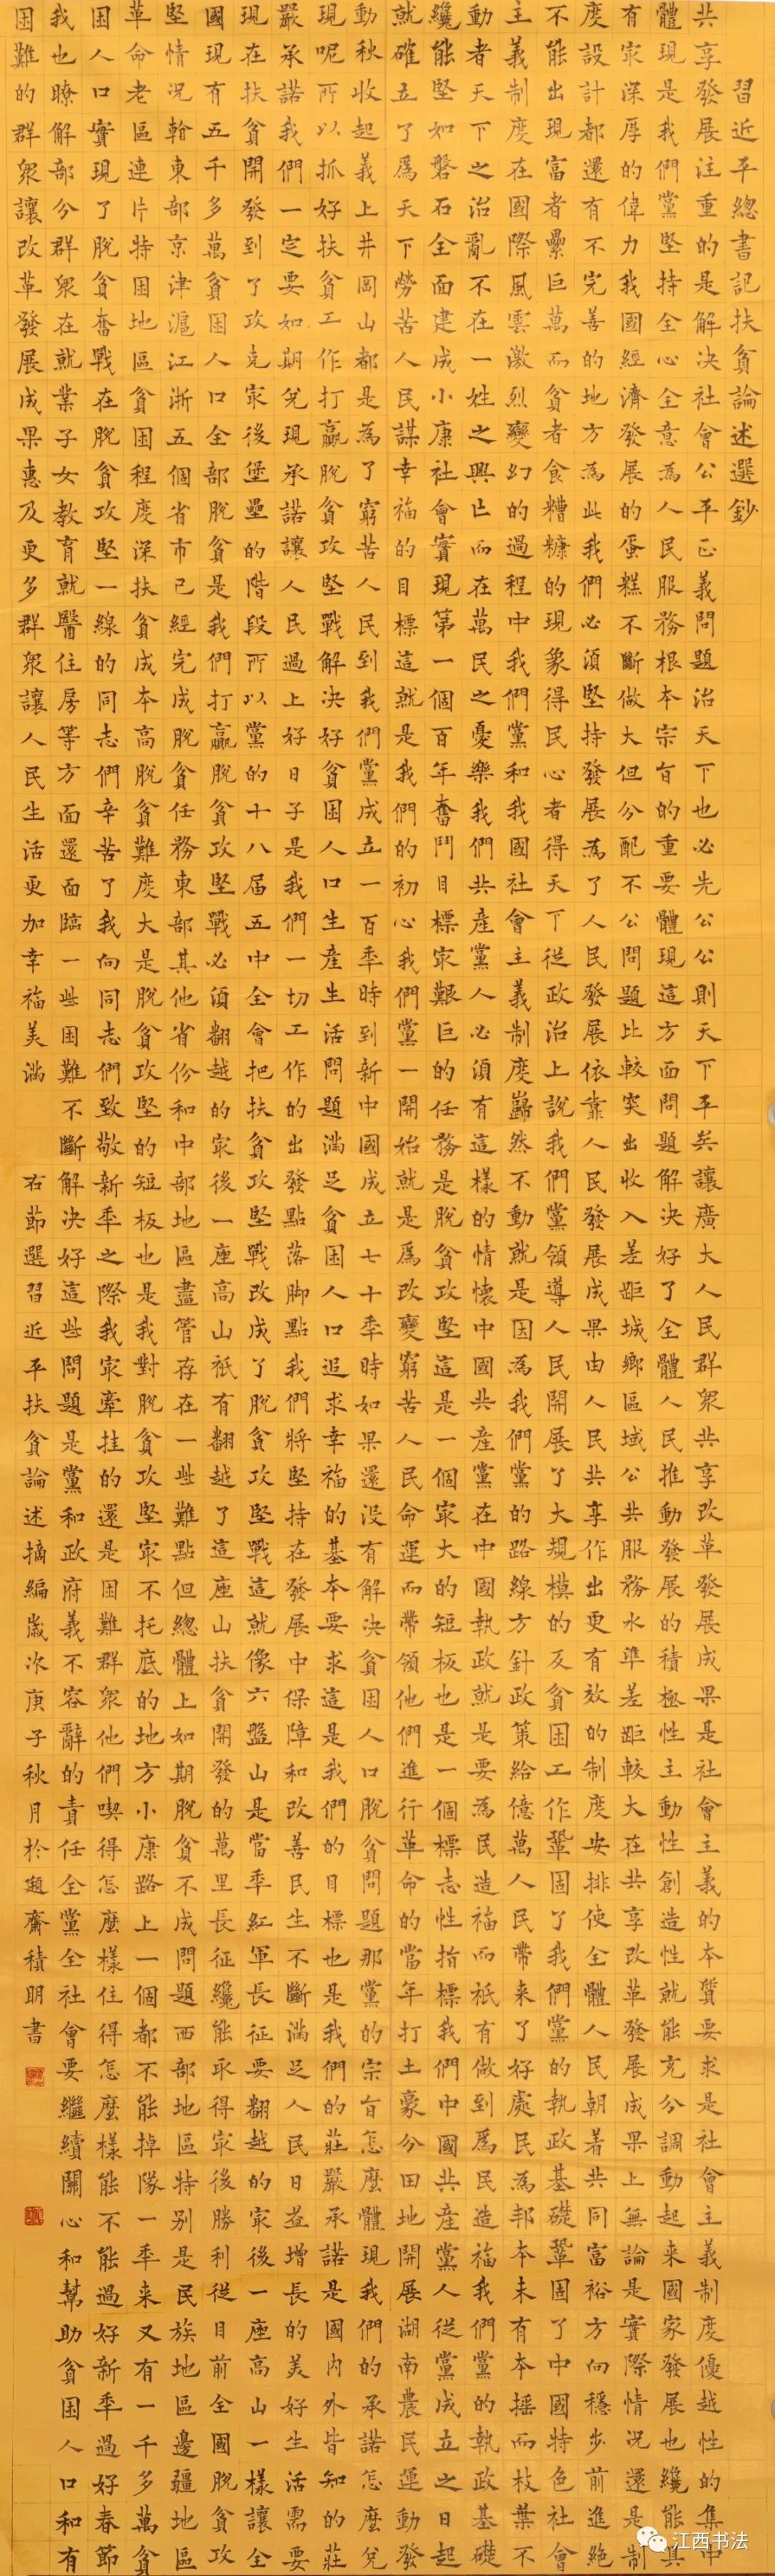 習近平總書記扶貧論述選鈔
共享發展注重的是解決社會公平正義問題治天下也必先公公則天下平矣讓廣大人民群眾共享改革發展成果是社會主義的本質要求是社會主義制度優越性的集中
體現是我們黨堅持全心全意為人民服務根本宗旨的重要體現這方面問題解決好了全體人民推動發展的積極性主動性創造性就能充分調動起来國家發展也纔能具
有冣深厚的偉力我國經濟發展的蛋糕不斷做大但分配不公問題比較突出收入差距城鄉區域公共服務水準差距較大在共享改革發展成果上無論是實際情况還是制
度設計都還有不完善的地方為此我們必須堅持發展為了人民發展依靠人民發展成果由人民共享作出更有效的制度安排使全體人民朝着共同富裕方向穩步前進絕
不能出現富者纍巨萬而貧者食糟糠的現象得民心者得天下從政治上說我們黨領導人民開展了大規模的反貧困工作鞏固了我們黨的執政基礎鞏固了中國特色社會
主義制度在國際風雲激烈變幻的過程中我們黨和我國社會主義制度巋然不動就是因為我們黨的路線方針政策給億萬人民帶来了好處民為邦本未有本搖而枝葉不
動者天下之治亂不在一姓之興亡而在萬民之憂樂我們共產黨人必須有這樣的情懷中國共產黨在中國執政就是要為民造福而祇有做到爲民造福我們黨的執政基礎
纔能堅如磐石全面建成小康社會實現第一個百年奮鬥目標冣艱巨的任務是脫貧攻堅這是一個冣大的短板也是一個標志性指標我們中國共產黨人從黨成立之日起
就確立了爲天下勞苦人民謀幸福的目標這就是我們的初心我們黨一開始就是爲改變窮苦人民命運而帶領他們進行革命的當年打土豪分田地開展湖南農民運動發
動秋收起義上井岡山都是為了窮苦人民到我們黨成立一百秊時到新中國成立七十秊時如果還没有解決貧困人口脫貧問題那黨的宗旨怎麼體現我們的承諾怎麼兌
現呢所以抓好扶貧工作打贏脫貧攻堅戰解決好貧困人口生產生活問題滿足貧困人口追求幸福的基本要求這是我們的目標也是我們的莊嚴承諾是國内外皆知的莊
嚴承諾我們一定要如期兌現承諾讓人民過上好日子是我們一切工作的出發點落脚點我們將堅持在發展中保障和改善民生不斷滿足人民日益增長的美好生活需要
現在扶貧開發到了攻克冣後堡壘的階段所以黨的十八届五中全會把扶貧攻堅戰改成了脫貧攻堅戰這就像六盤山是當秊紅軍長征要翻越的冣後一座高山一樣讓全
國現有五千多萬貧困人口全部脫貧是我們打贏脫貧攻堅戰必須翻越的冣後一座高山祇有翻越了這座山扶貧開發的萬里長征纔能取得冣後勝利從目前全國脫貧攻
堅情况看東部京津滬江浙五個省市已經完成脫貧任務東部其他省份和中部地區盡管存在一些難點但總體上如期脫貧不成問題西部地區特别是民族地區邊疆地區
革命老區連片特困地區貧困程度深扶貧成本高脫貧難度大是脫貧攻堅的短板也是我對脫貧攻堅冣不托底的地方小康路上一個都不能掉隊一秊来又有一千多萬貧
困人口實現了脫貧奮戰在脫貧攻堅一線的同志們辛苦了我向同志們致敬新秊之際我冣牽挂的還是困難群眾他們喫得怎麼樣住得怎麼樣能不能過好新秊過好春節
我也瞭解部分群眾在就業子女教育就醫住房等方面還面臨一些困難不斷解決好這些問題是黨和政府義不容辭的責任全黨全社會要繼續關心和幫助貧困人口和有
困難的群眾讓改革發展成果惠及更多群眾讓人民生活更加幸福美滿
右節選習近平扶貧論述摘編歲次庚子秋月於齋積明書
江西书法